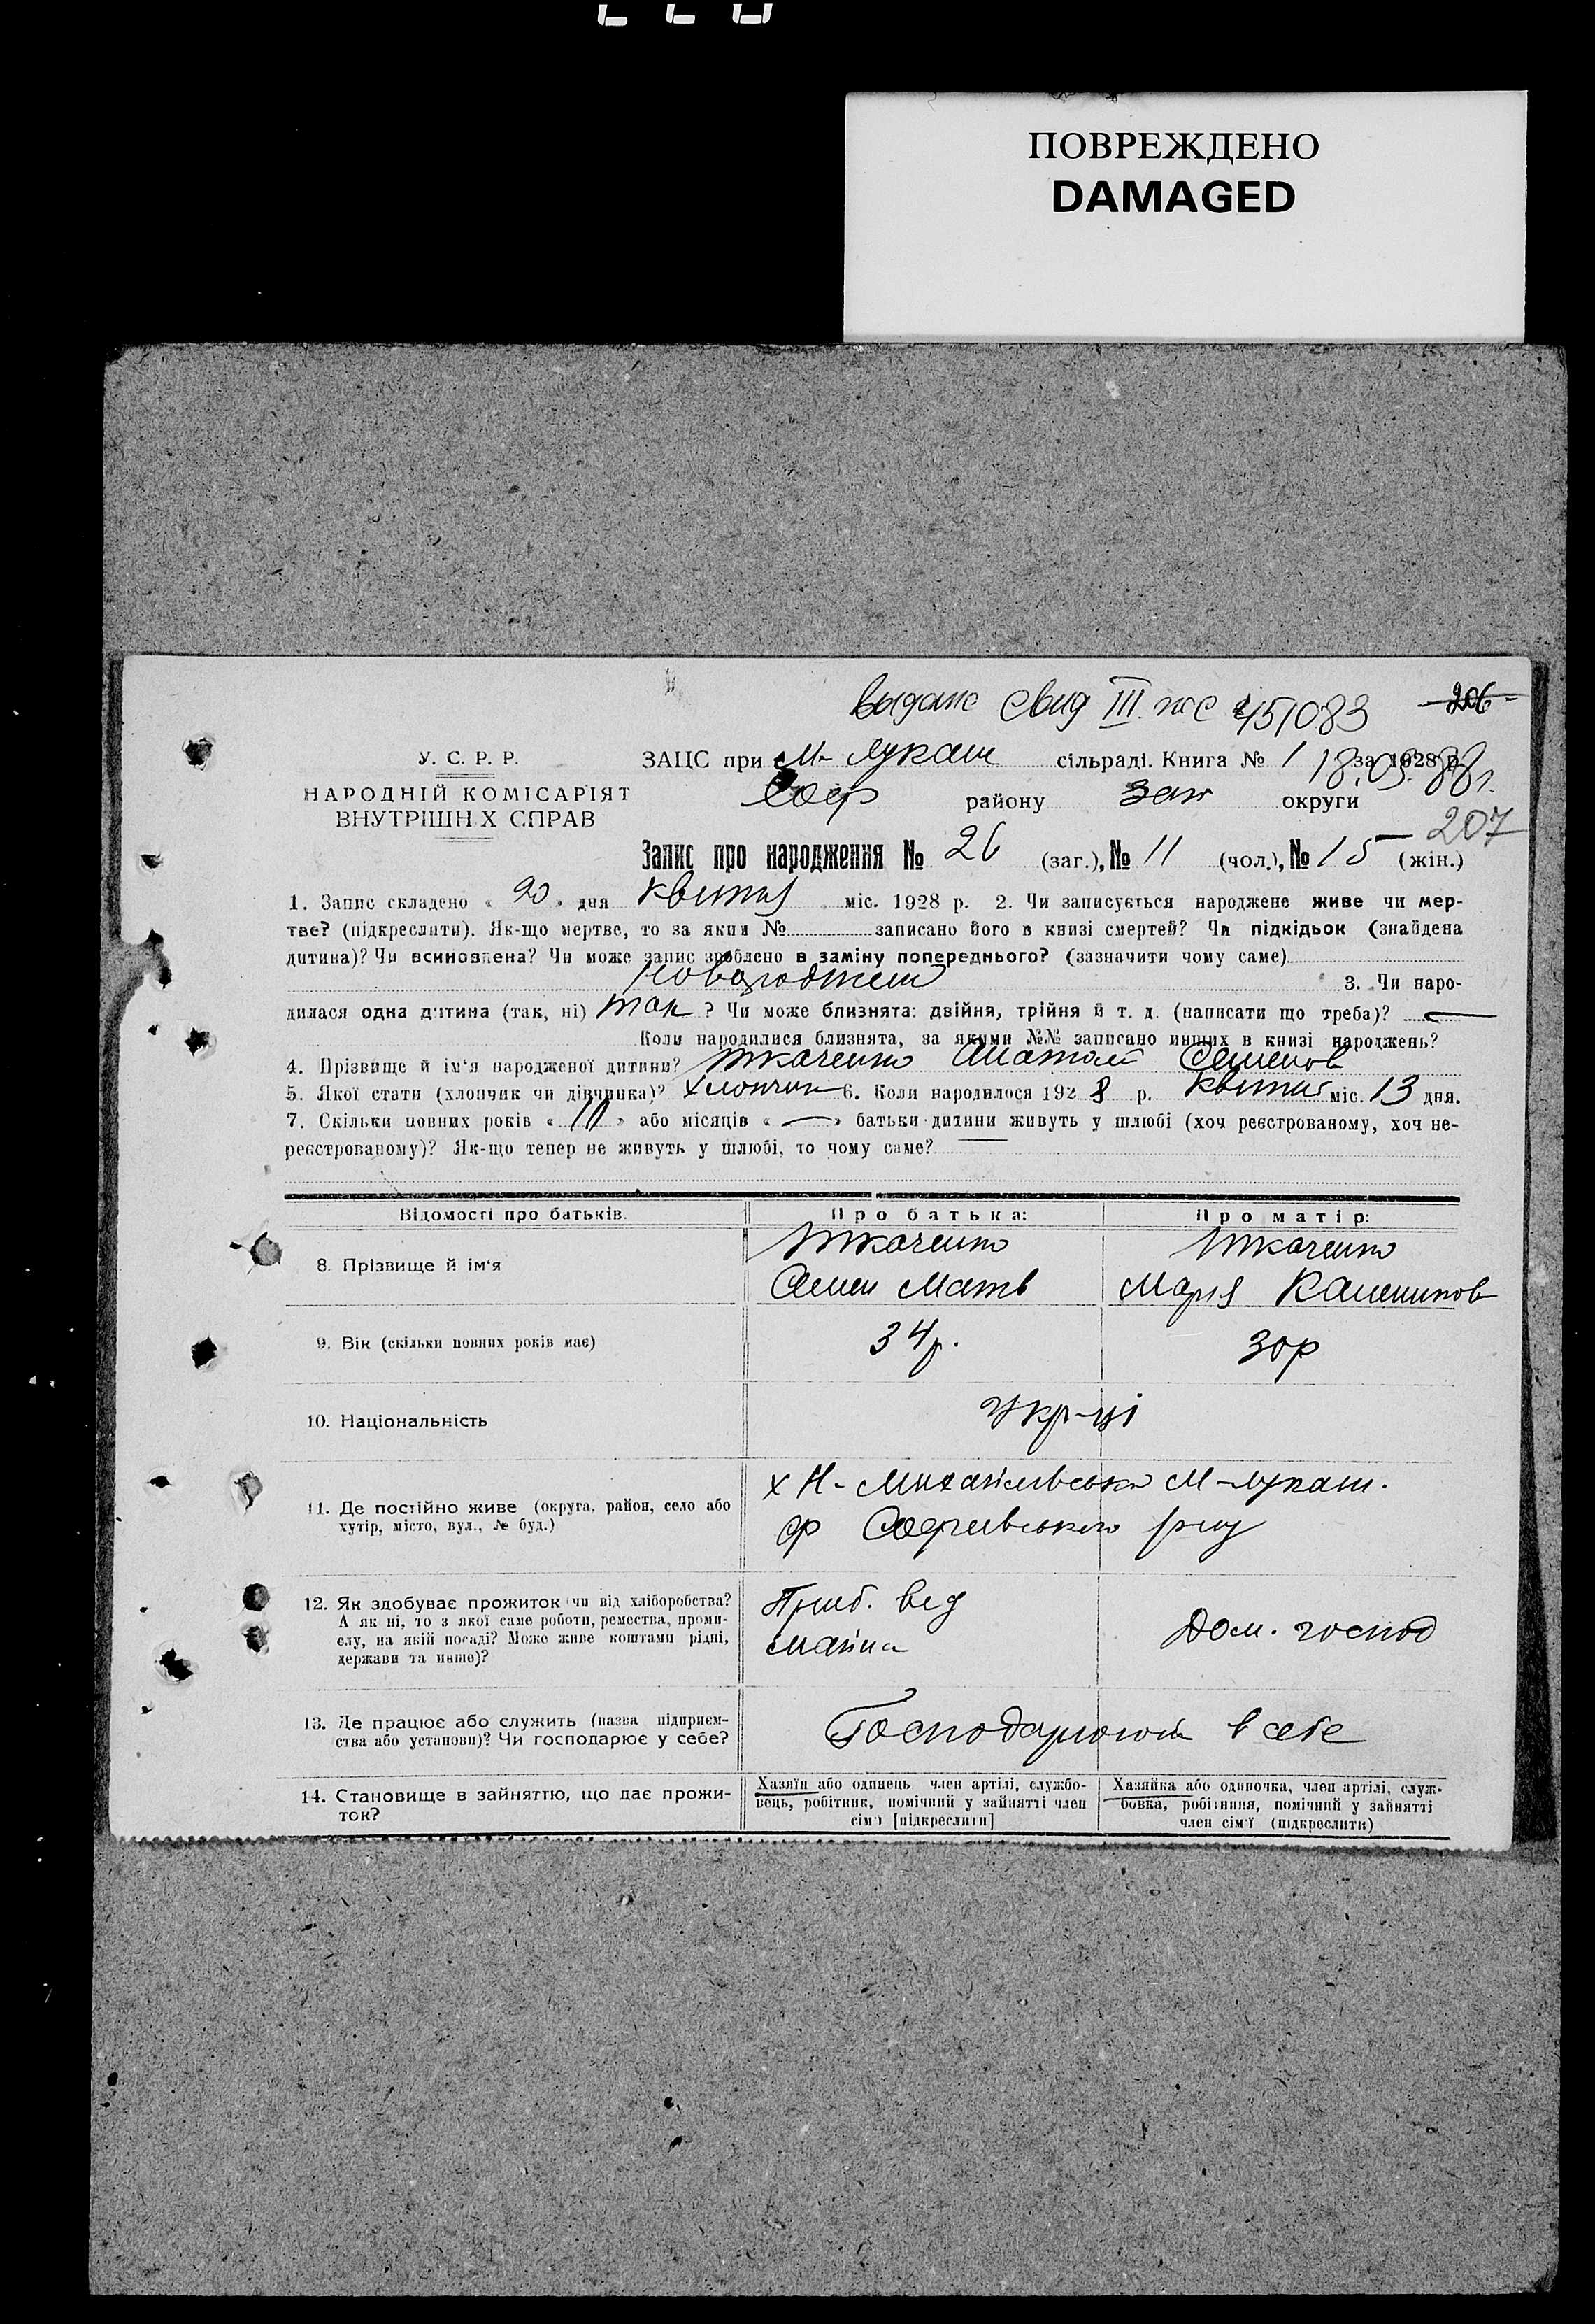 ПОВРЕЖДЕНО
DAMAGED
выдано свид III жс 451083
206
У. С. Р. Р.
НАРОДНІЙ КОМІСАРІЯТ
ВНУТРІШН Х СПРАВ
ЗАЦС при М-Лукаш сільраді. Книга № 1 за 1928 р.
18.03.88г.
Соф району Зап округи
207
Запис про народження № 26 (заг.), № 11 (чол.), № 15 (жін.)
1. Запис складено « 20 » дня квітня міс. 1928 р. 2. Чи записується народжене живе чи мер-
тве? (підкреслити). Як-що мертве, то за яким № записано його в книзі смертей? Чи підкідьок (знайдена
дитина)? Чи всиновлена? Чи може запис зроблено в заміну попереднього? (зазначити чому саме)
3. Чи наро-
дилася одна дитина (так, ні) так ? Чи може близнята: двійня, трійня й т. д. (написати що треба)? —
Коли народилися близнята, за якими №№ записано инших в книзі народжень?
4. Прізвище й ім'я народженої дитини? Ткаченко Анатолій Семенов
5. Якої стати (хлопчик чи дівчинка)? хлопчик 6. Коли народилося 192 8 р. квітня міс. 13 дня.
7. Скільки повних років « 10 » або місяців « — » батьки дитини живуть у шлюбі (хоч реєстрованому, хоч не-
реєстрованому)? Як-що тепер не живуть у шлюбі, то чому саме? —
Відомості про батьків. Про батька: Про матір:
8. Прізвище й ім'я Ткаченко Ткаченко
Семен Матв Марія Каленников
9. Вік (скільки повних років має) 34р. 30р
10. Національність Укр-ці
11. Де постійно живе (округа, район, село або
хутір, місто, вул., № буд.)
х Н-Михайлівська М-Лукаш.
Софиевського р-ну
12. Як здобуває прожиток чи від хліборобства?
А як ні, то з якої саме роботи, ремества, проми-
слу, на якій посаді? Може живе коштами рідні,
держави та инше)?
Приб. вед
майна
Дом. господ
13. Де працює або служить (назва підприєм-
ства або установи)? Чи господарює у себе?
Господарюють в себе
14. Становище в зайняттю, що дає прожи-
ток?
Хазяїн або одинець член артілі, службо-
вець, робітник, помічний у зайнятті член
сім'ї [підкреслити]
Хазяйка або одиночка, член артілі, служ-
бовка, робітниця, помічний у зайнятті
член сім'ї (підкреслити)